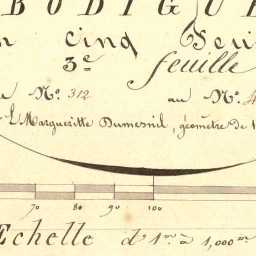 BODIGU
cinq
3e feuille
No. 312 au No.
Margueritte Dumesnil, géomètre de 1
70 80 90 100
Echelle d'1m. à 1,000m.